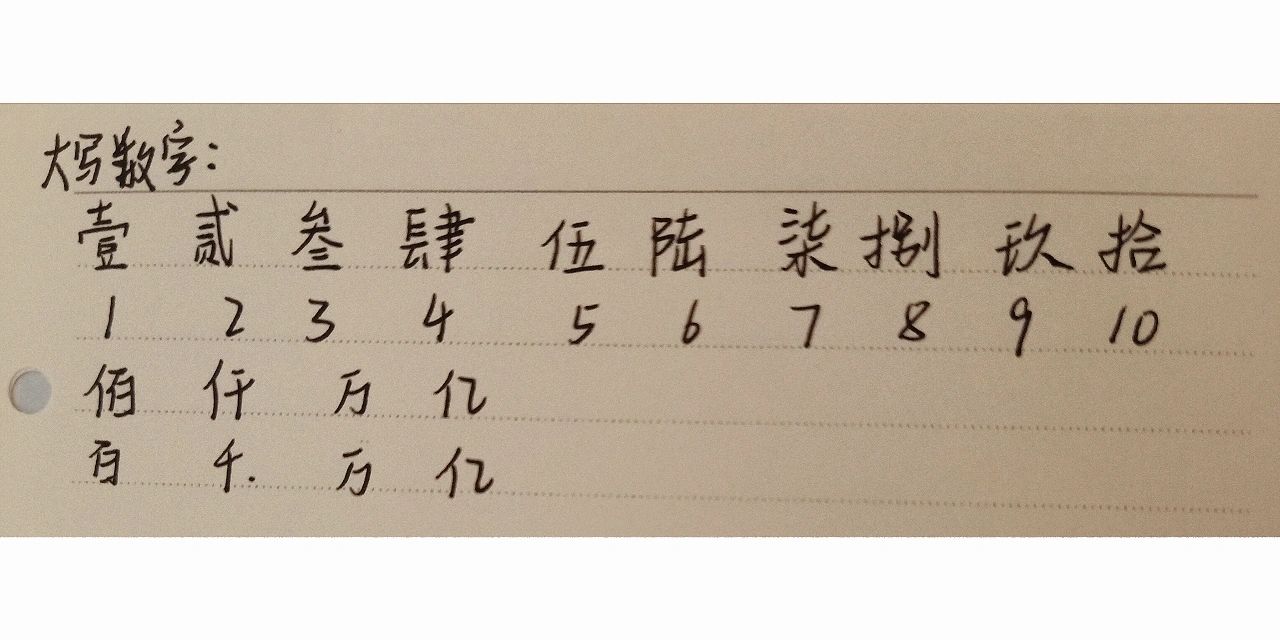 大写数字:
壹 贰 叁 肆 伍 陆 柒 捌 玖 拾
1 2 3 4 5 6 7 8 9 10
佰 仟 万 亿
百 千. 万 亿